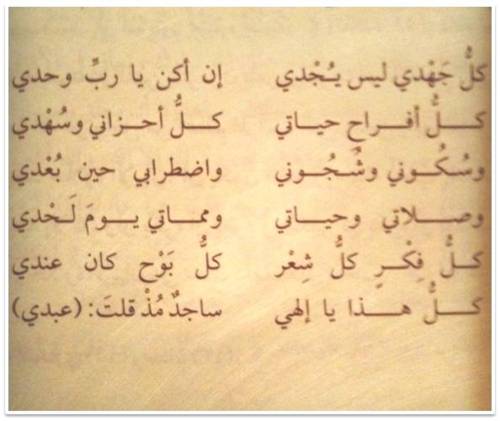 كلُّ جَهْدي ليس يُجْدي إن أكن يا ربِّ وحدي
كــلُّ أفــراحِ حيــاتي كــلُّ أحــزاني وسُهْدي
وسُكُــوني وشُجُــوني واضطرابي حين بُعْدي
وصــلاتي وحيــاتي وممــاتي يــومَ لَــحْدي
كــلُّ فِكْــرٍ كلُّ شِعْر كلُّ بَوْح كان عندي
كــلُّ هــذا يا إلهي ساجدٌ مُذْ قلتَ: (عبدي)